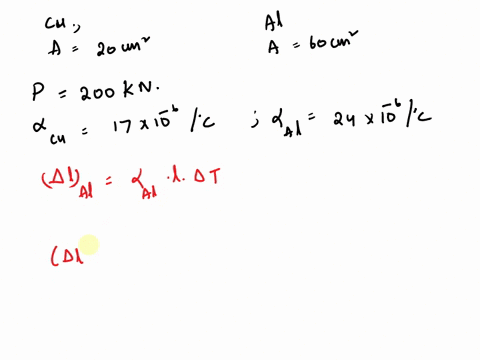 Cu; Al
A = 20 cm² A = 60 cm²
P = 200 KN.
α_Cu = 17 × 10⁻⁶ /°C ; α_Al = 24 × 10⁻⁶ /°C
(Δl)_Al = α_Al · l · ΔT
(Δl